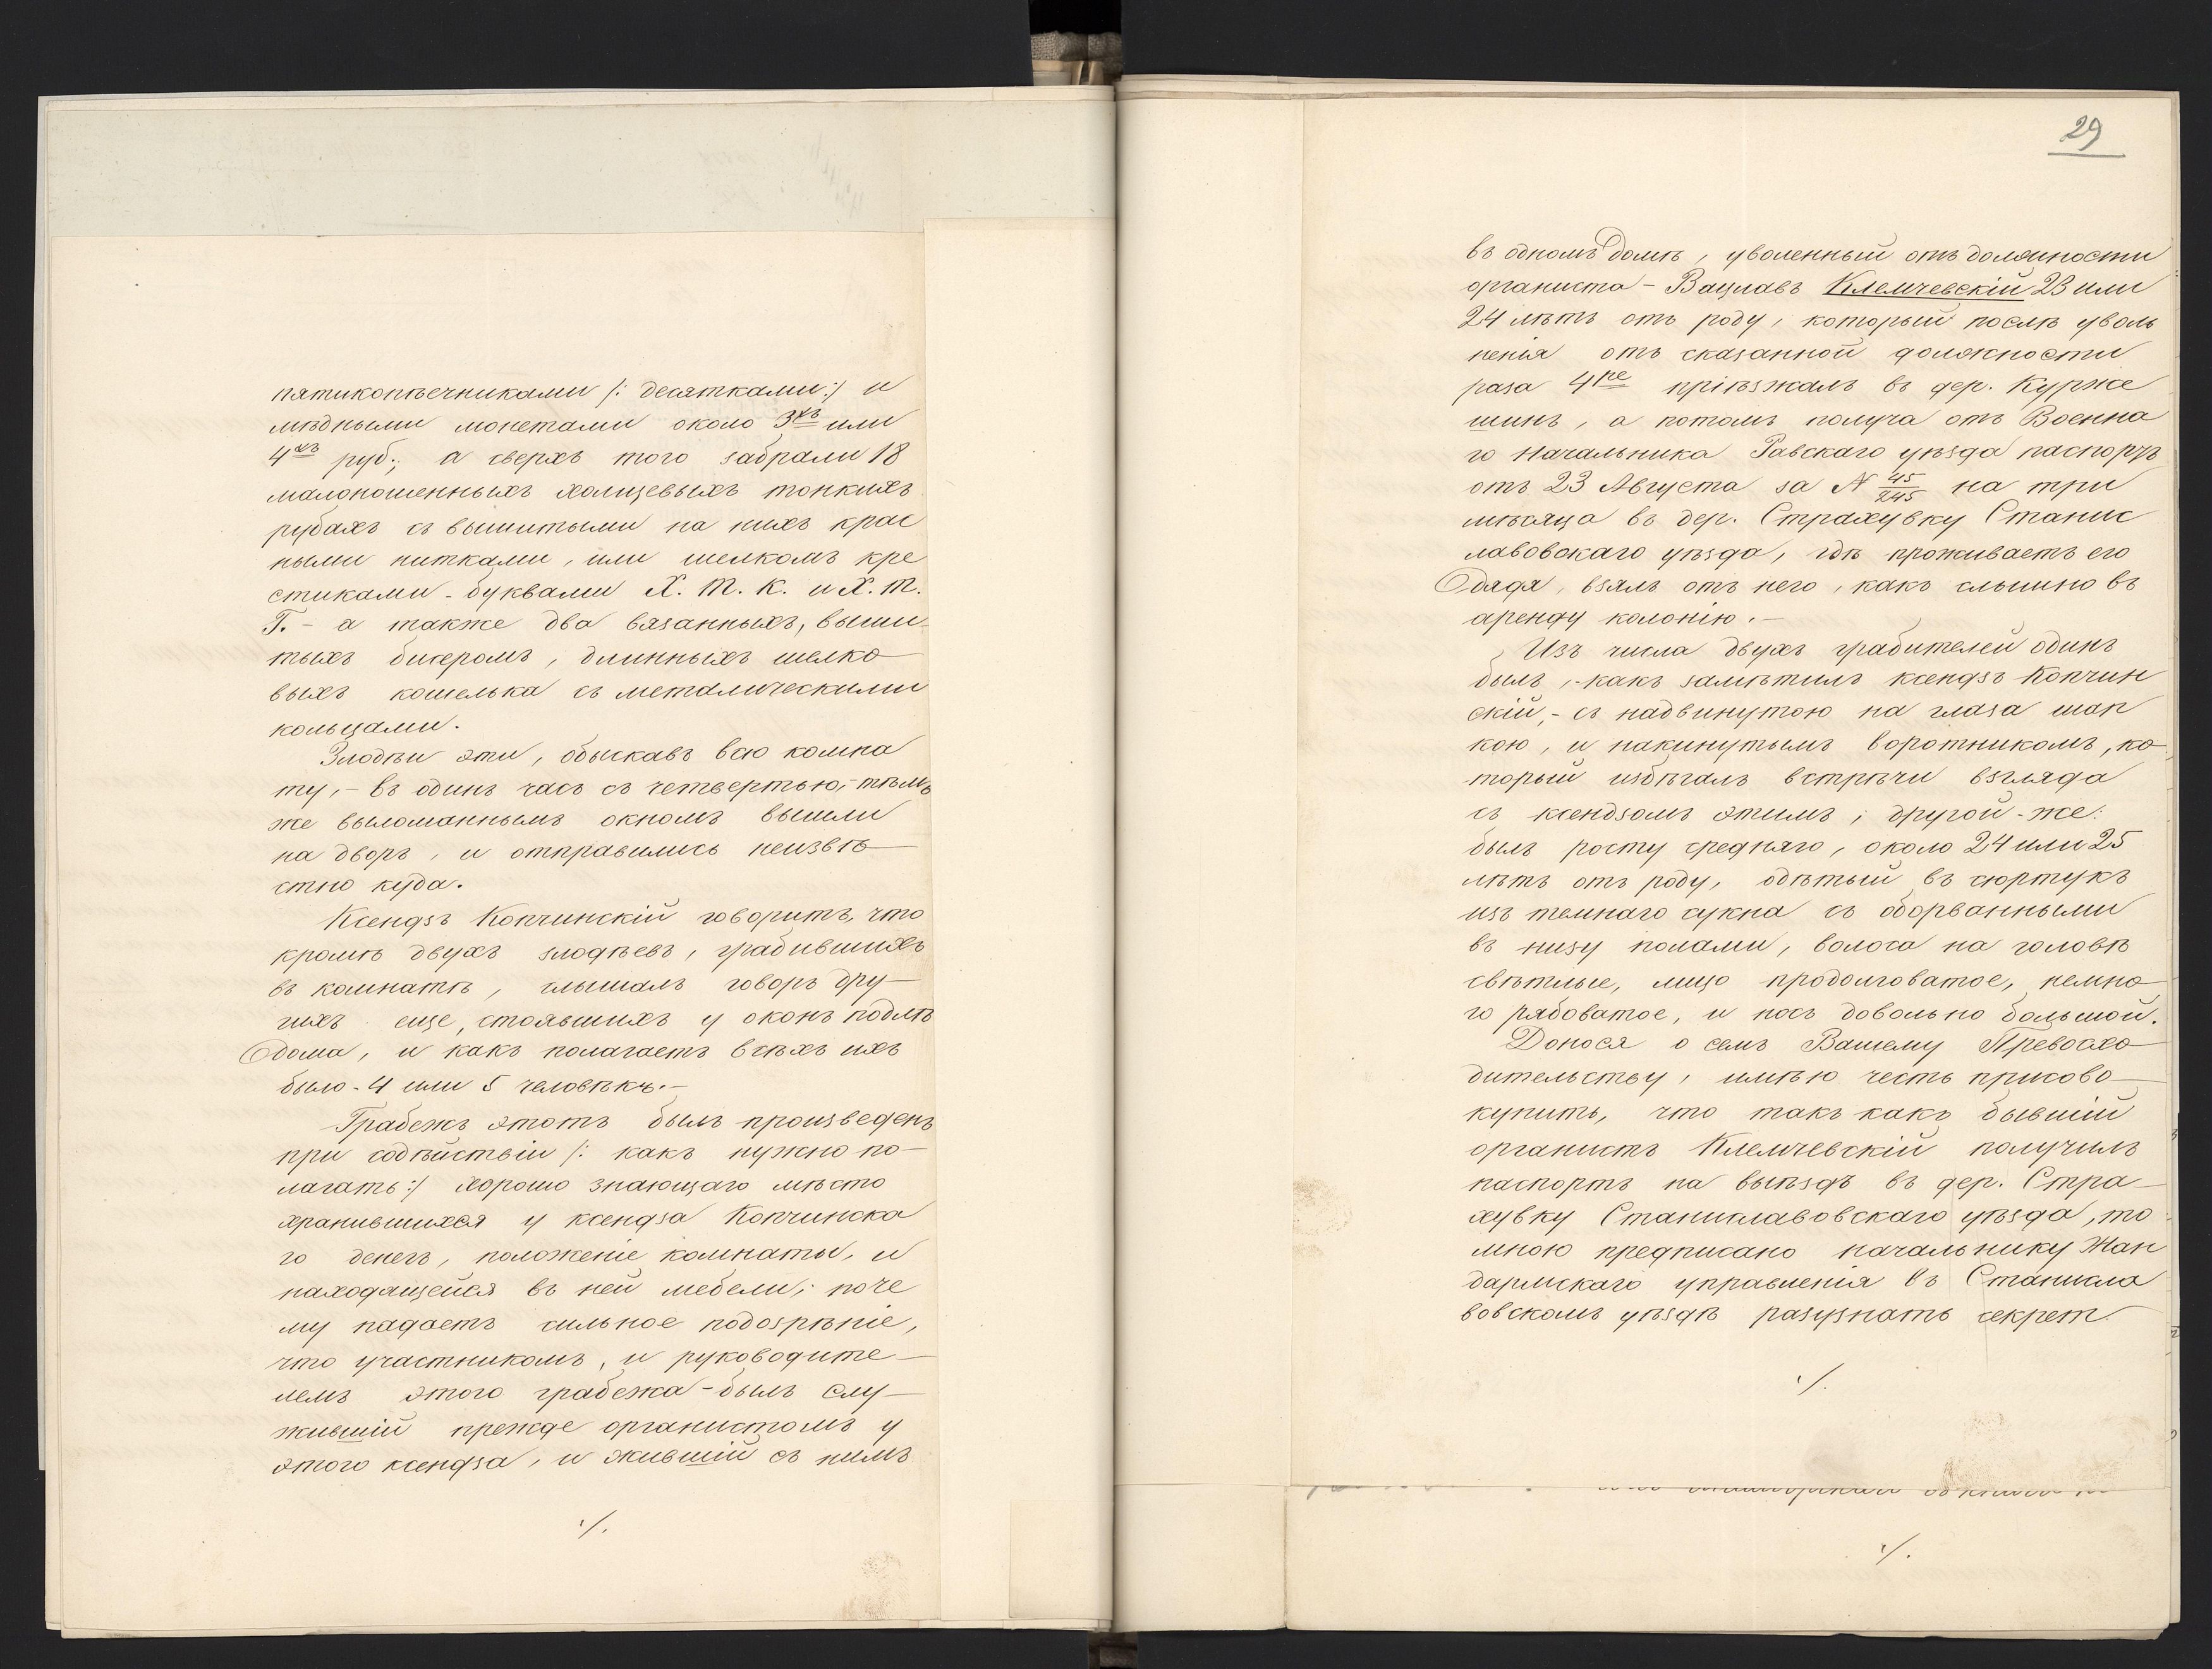 пятикопѣечниками /: десятками :/ и
мѣдными монетами около 3хъ или
4хъ руб:, а сверхъ того забрали 18
малоношенныхъ холщевыхъ тонкихъ
рубахъ съ вышитыми на нихъ крас
ными нитками, или шелкомъ кре
стиками - буквами Х. Т. К. и Х. Т.
Г. - а также два вязанныхъ, выши
тыхъ бисеромъ, длинныхъ шелко
выхъ кошелька съ металическими
кольцами.
Злодѣи эти, обыскавъ всю комна
ту, - въ одинъ часъ съ четвертью, - тѣмъ
же выломаннымъ окномъ вышли
на дворъ, и отправились неизвѣ
стно куда.
Ксендзъ Копчинскій говоритъ, что
кромѣ двухъ злодѣевъ, грабившихъ
въ комнатѣ, слышалъ говоръ дру-
гихъ еще, стоявшихъ у оконъ подлѣ
дома, и какъ полагаетъ всѣхъ ихъ
было - 4 или 5 человѣкъ. -
Грабежъ этотъ былъ произведенъ
при содѣйствіи /: какъ нужно по-
лагать :/ хорошо знающаго мѣсто
хранившихся у ксендза Копчинска
го денегъ, положеніе комнаты, и
находящейся въ ней мебели; поче
му падаетъ сильное подозрѣніе,
что участникомъ, и руководите-
лемъ этого грабежа - былъ слу-
жившій прежде органистомъ у
этого ксендза, и жившій съ нимъ
./.
29
въ одномъ домѣ, уволенный отъ должности
органиста - Вацлавъ Клемчевскій 23 или
24 лѣтъ отъ роду, который послѣ уволь
ненія отъ сказанной должности
раза 4ре пріѣзжалъ въ дер. Курже
шинъ, а потомъ получа отъ Военна
го Начальника Равскаго уѣзда паспортъ
отъ 23 Августа за N 45/245 на три
мѣсяца въ дер. Страхувку Станис
лавовскаго уѣзда, гдѣ проживаетъ его
дядя, взялъ отъ него, какъ слышно въ
аренду колонію. -
Изъ числа двухъ грабителей одинъ
былъ, - какъ замѣтилъ ксендзъ Копчин
скій, - съ надвинутою на глаза шап
кою, и накинутымъ воротникомъ, ко
торый избѣгалъ встрѣчи взгляда
съ ксендзомъ этимъ; другой - же:
былъ росту средняго, около 24 или 25
лѣтъ отъ роду, одѣтый въ сюртукъ
изъ темнаго сукна съ оборванными
въ низу полами, волоса на головѣ
свѣтлые, лицо продолговатое, немно
го рябоватое, и носъ довольно большой.
Донося о семъ Вашему Превосхо
дительству, имѣю честь присово
купить, что такъ какъ бывшій
органистъ Клемчевскій получилъ
паспортъ на выѣздъ въ дер. Стра-
хувку Станиславовскаго уѣзда, то
мною предписано начальнику Жан
дармскаго управленія въ Станисла
вовскомъ уѣздѣ разузнать секрет
./.
./.